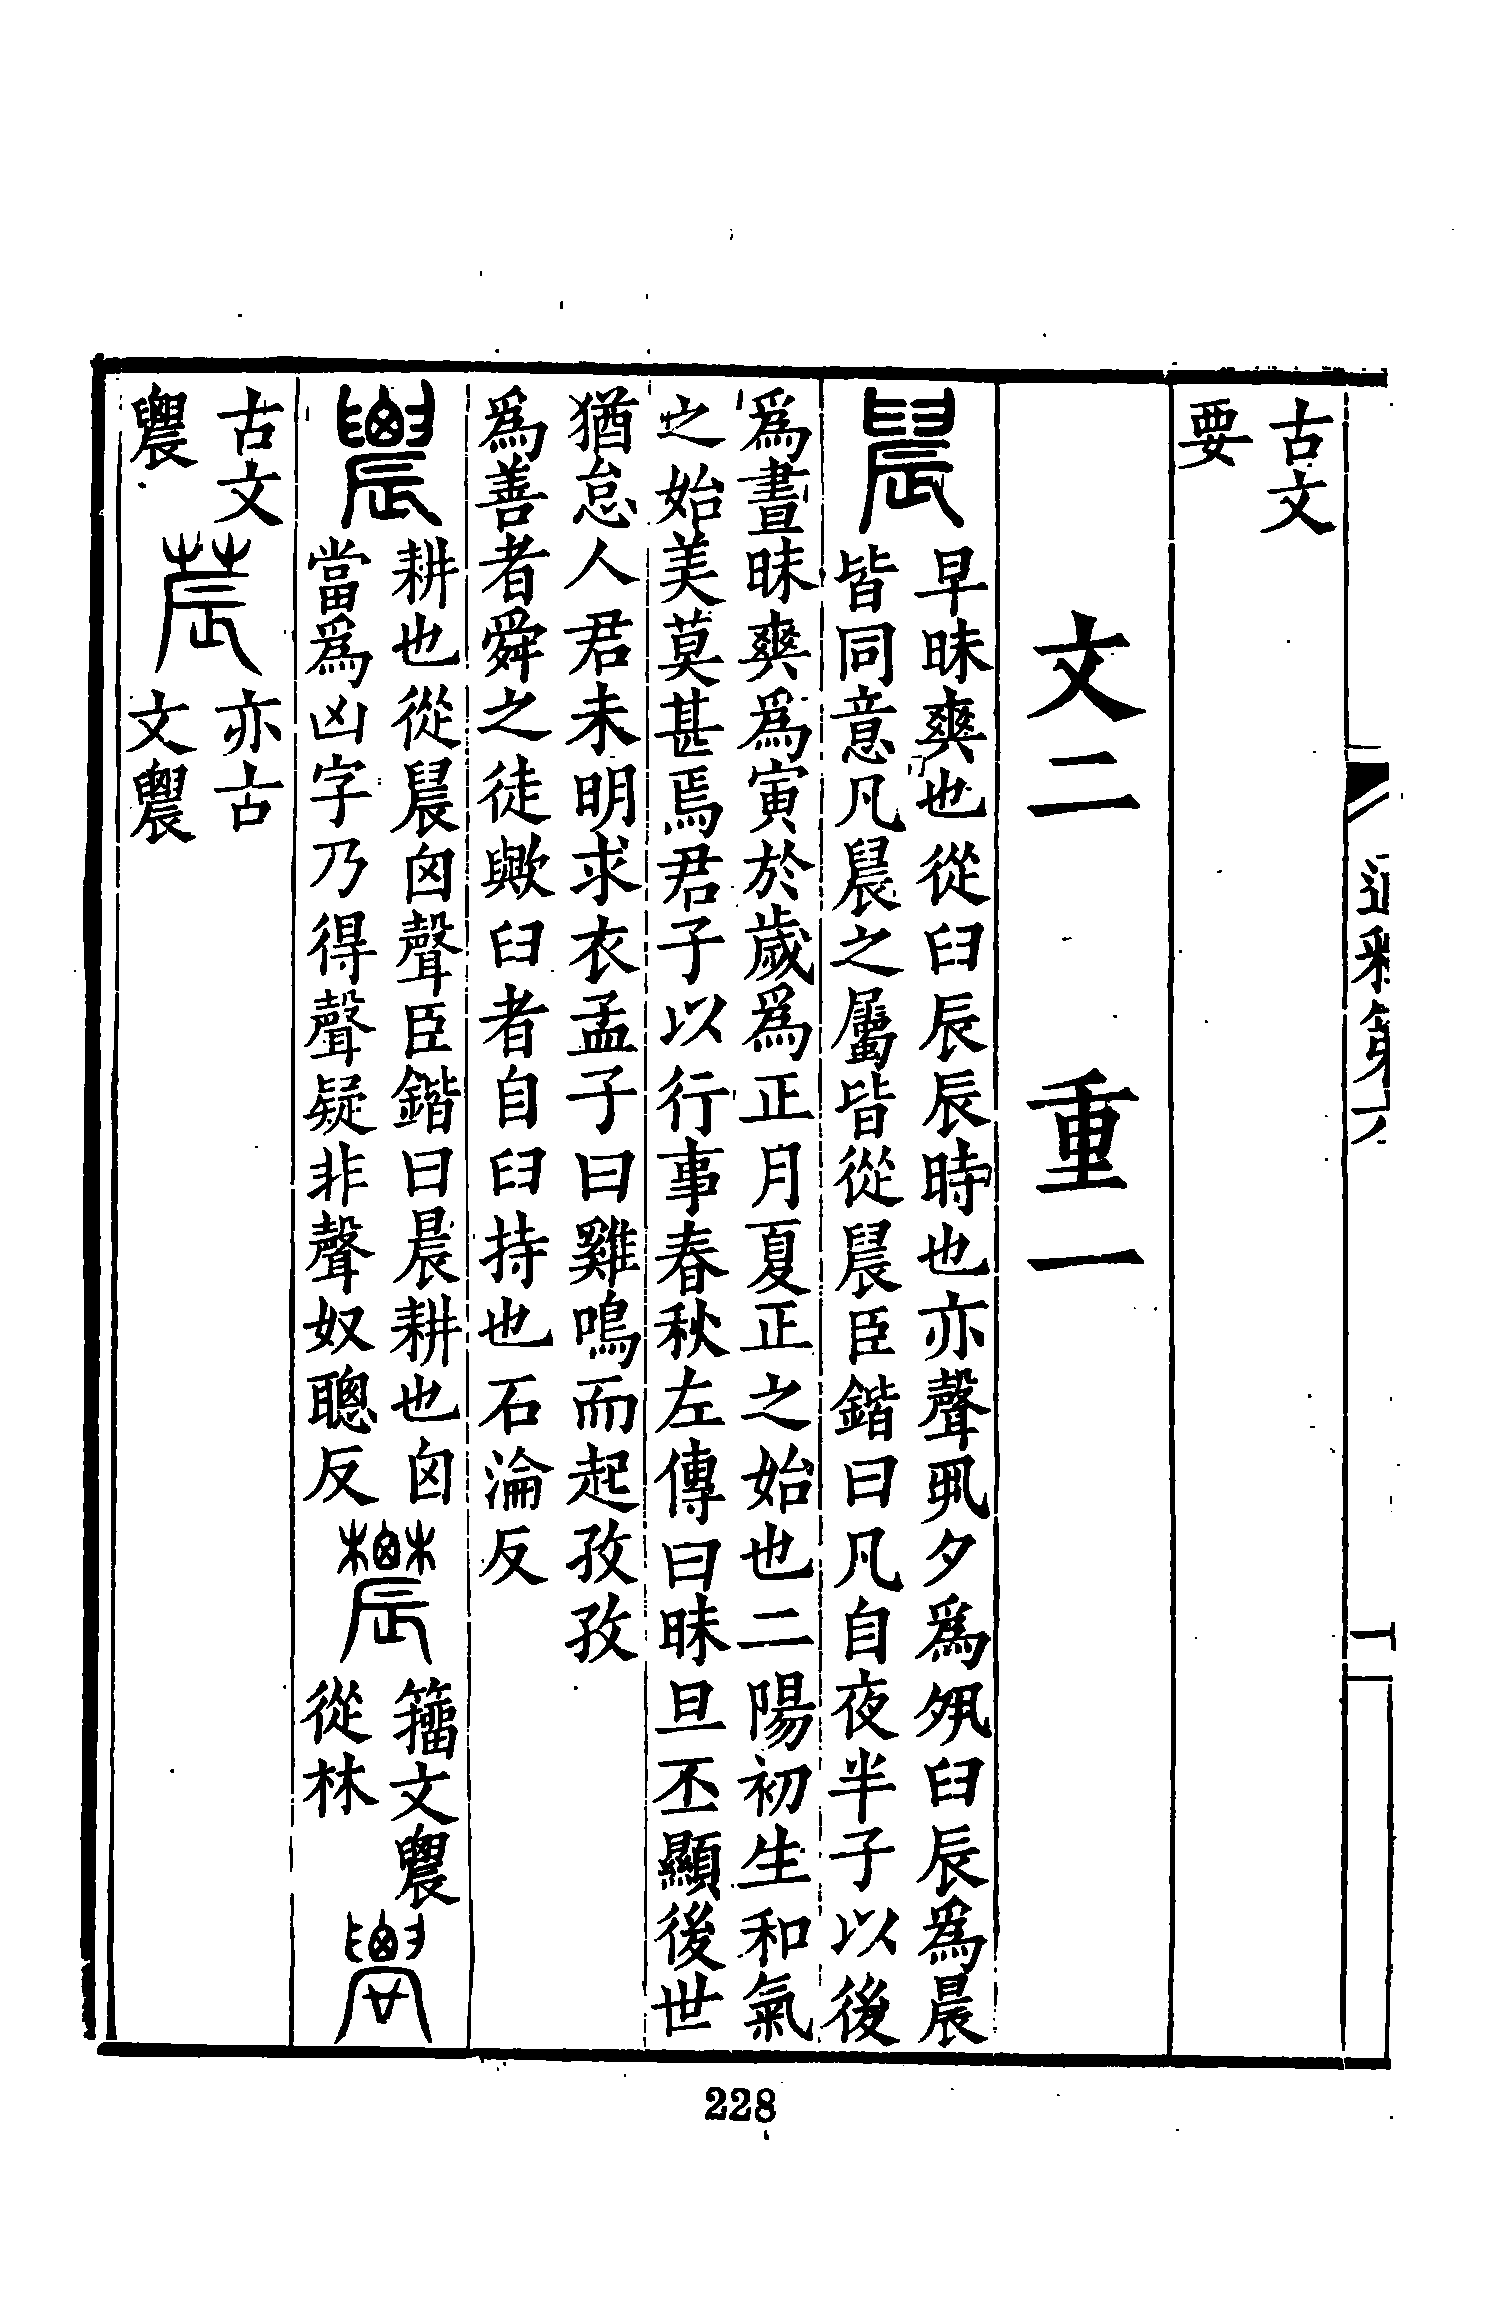 古文
要
文二　重一
早昧爽也從臼辰辰時也亦聲丮夕爲𡖊臼辰爲晨
皆同意凡晨之屬皆從晨臣鍇曰凡自夜半子以後
爲晝昧爽爲寅於歲爲正月夏正之始也二陽初生和氣
之始美莫甚焉君子以行事春秋左傳曰昧旦丕顯後世
猶怠人君未明求衣孟子曰雞鳴而起孜孜
爲善者舜之徒歟臼者自臼持也石淪反
耕也從晨囟聲臣鍇曰晨耕也囟
當爲凶字乃得聲疑非聲奴聰反
籒文農
從林
古文
農
亦古
文農
通釋第六
228